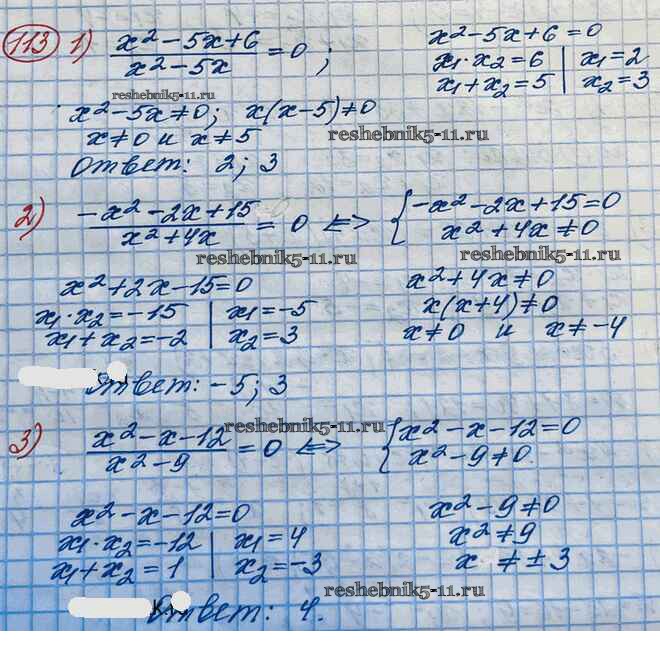 113 1) x² - 5x + 6 / x² - 5x = 0 ; x² - 5x + 6 = 0
x₁ · x₂ = 6 | x₁ = 2
x₁ + x₂ = 5 | x₂ = 3
reshebnik5-11.ru
x² - 5x ≠ 0 ; x(x - 5) ≠ 0
x ≠ 0 и x ≠ 5
reshebnik5-11.ru
Ответ: 2 ; 3
2) -x² - 2x + 15 / x² + 4x = 0 <=> { -x² - 2x + 15 = 0
x² + 4x ≠ 0
reshebnik5-11.ru
reshebnik5-11.ru
x² + 2x - 15 = 0
x₁ · x₂ = -15 | x₁ = -5
x₁ + x₂ = -2 | x₂ = 3
x² + 4x ≠ 0
x(x + 4) ≠ 0
x ≠ 0 и x ≠ -4
Ответ: -5 ; 3
reshebnik5-11.ru
3) x² - x - 12 / x² - 9 = 0 <=> { x² - x - 12 = 0
x² - 9 ≠ 0
x² - x - 12 = 0
x₁ · x₂ = -12 | x₁ = 4
x₁ + x₂ = 1 | x₂ = -3
x² - 9 ≠ 0
x² ≠ 9
x ≠ ± 3
reshebnik5-11.ru
Ответ: 4.